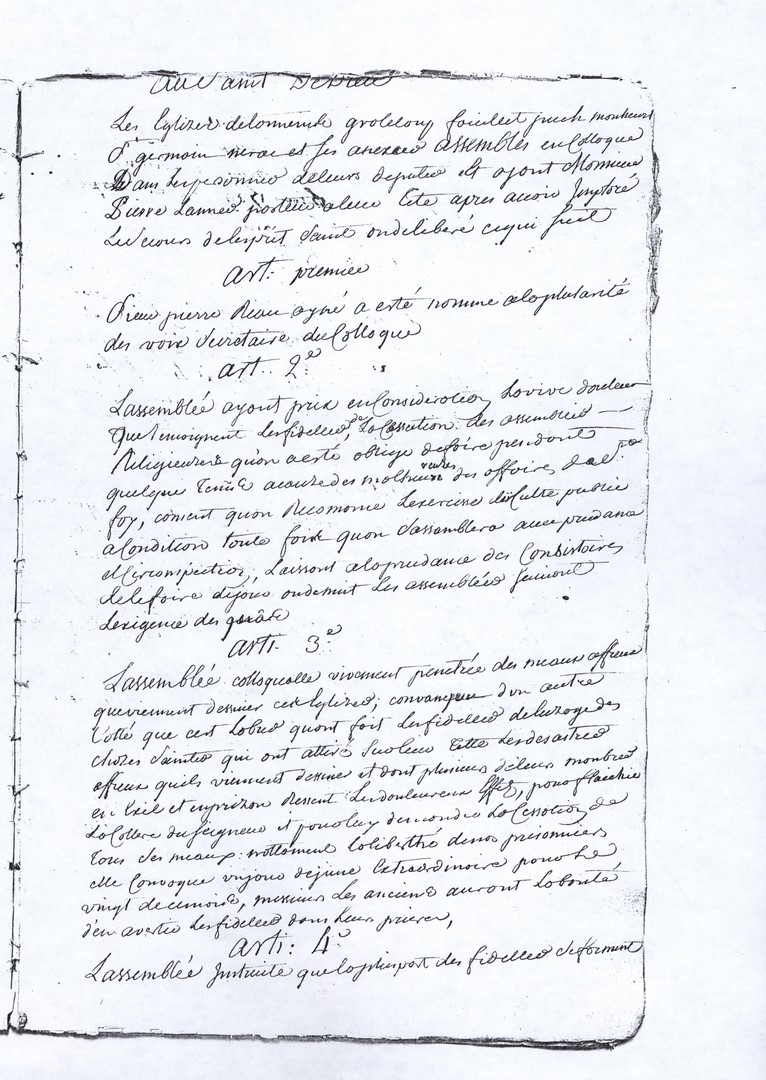 Au
Les Eglizes delomende groteloup foeillect puch monheurt
St germain nerac et ses anexes assembles en Colloque
Dans les personnes de leurs deputés et ayant Monsieur
Pierre a leur tete apres avoir Imploré
Le secours de lesprit Saint on delibéré ce qui suit
art: premier
Sieur pierre Reau ayné a esté nomme alapluralité
des voix Secretaire du Colloque
art 2e
Lassemblée ayant prix en Consideration La vive douleur
Que temoignent les fidelles, La Cessation des assemblees
Religieuzes qu'on a esté obligé de foire pendant
quelque tems acauze des malheureuzes affaires de
foy, consent quon Recomance Lexercise du Culte public
a Condition toute fois quon Sassemblera avec prudance
et Circonspection, Laissant ala prudance des Consistoires
de le foire de jour ou de nuit Les assemblées Suivant
Lexigence des
art. 3e
Lassemblée colloqualle vivement penétrée des meaux affreux
que viennent dessuier ces Eglizes, convainque d'un autre
Cotté que cest Labus quont fait les fidelles de Luzage des
chozes Saintes qui ont attiré Sur leur Tette Les desastres
affreux quils viennent dessuier et dont plusieurs de leurs membres
en Exil et en prizon Ressent Les douleureux Effez, pour flaichir
La Collere du Seigneur et pour luy demander La Cessation de
tous Ses meaux: nottament la liberthé de nos prisonniers
elle Convoque un jour de jeune Extraordinaire pour le
vingt de ce mois, messieurs Les anciens auront La bonté
d'en avertir Les fidelles dans leurs prieres,
art: 4e
Lassemblée Instruite que la pluspart des fidelles se forment